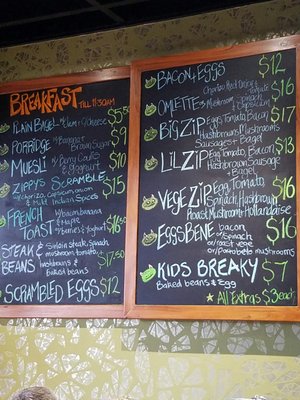 BREAKFAST TILL 11:30AM
PLAIN BAGEL $5.50
PORRIDGE + Banana + Brown Sugar $9
MUESLI w/ Berry Coulis & Yoghurt $10
ZIPPY'S SCRAMBLE $15
w/ chorizo, capsicum, onion
and Mild Indian Spices
FRENCH w/ bacon, banana
TOAST + Maple $16.50
STEAK & Sirloin steak, Spinach,
BEANS mushroom, tomato, $17.50
hashbrowns &
baked beans
SCRAMBLED EGGS $12
BACON, EGGS $12
OMLETTE $16
BIG ZIP Egg, Tomato, Bacon $17
Hashbrowns, Mushrooms
Sausages + Bagel
LIL ZIP Egg, Tomato, Bacon $13
Hashbrown, Sausage
+ Bagel
VEGE ZIP Egg, Tomato, $16
Spinach, Hashbrown
Roast Mushroom, Hollandaise
EGGS BENE bacon $16
or Spinach
or roast vege
or Portobello mushrooms
KIDS BREAKY $7
Baked beans & Egg
★ All Extras $3 each